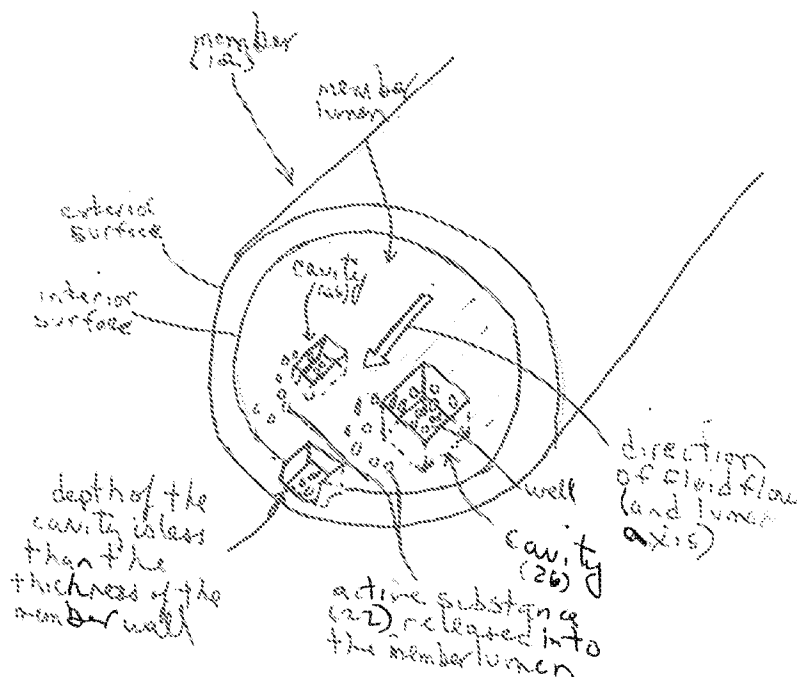 member
(12)
member
lumen
exterior
surface
interior
surface
cavity
(26)
direction
of fluid flow
(and lumen
axis)
well
cavity
(26)
depth of the
cavity is less
than the
thickness of the
member wall
active substance
(22) released into
the member lumen